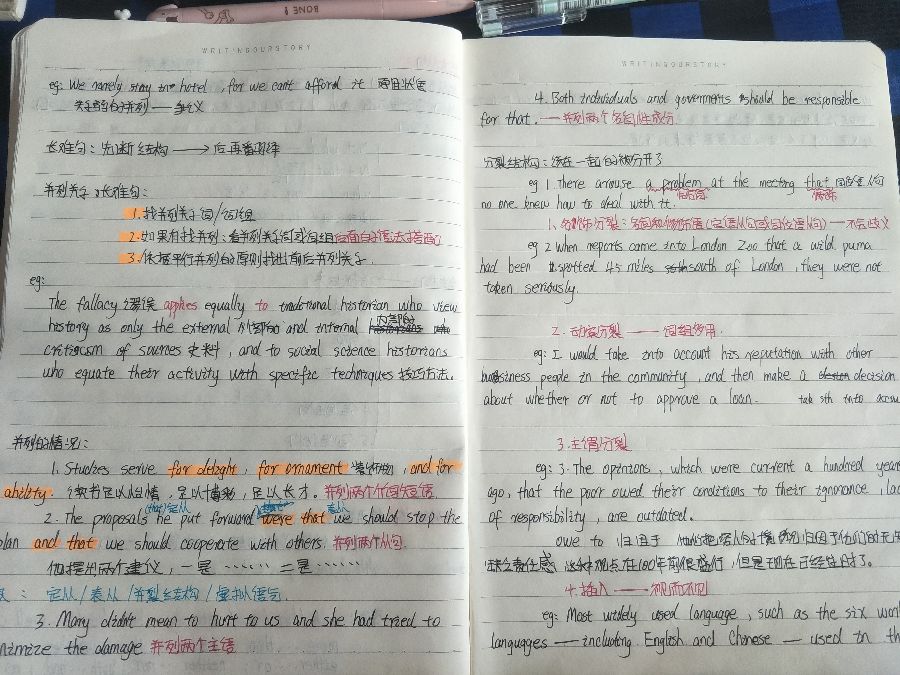 BONE
WRITINGOURSTORY
eg: We rarely stay in hotel, for we can't afford it
关系的并列 — 争议
长难句: 先断结构 → 后再看翻译
并列关系长难句:
1. 找并列关系词/词组
2. 如果有找并列: 看并列关系词或词组后面的(语法搭配)
3. 依据平行并列的原则找出前后并列关系.
eg:
The fallacy 谬误 applies equally to traditional historian who view
history as only the external 外部的 and internal 内部的 historians who
criticism of sources 史料, and to social science historians
who equate their activity with specific techniques 技巧方法.
并列的情况:
1. Studies serve for delight, for ornament 装饰物, and for
ability. 读书足以怡情, 足以博彩, 足以长才. 并列两个介词短语
(that)定从 表从
2. The proposals he put forward were that we should stop the
plan and that we should cooperate with others. 并列两个从句
他提出两个建议, 一是 …… 二是 ……
: 定从/表从/并列结构/虚拟语气
3. Mary didn't mean to hurt to us and she had tried to
nimize the damage 并列两个主语
WRITINGOURSTORY
4. Both individuals and goverments should be responsible
for that. — 并列两个名词性成分
分裂结构: 该在一起的被分开了
eg 1. There arouse a problem at the meeting that 同位语从句
no one knew how to deal with it.
1. 名修饰分裂: 名词和修饰语(定语从句或同位语从句) — 不会歧义
eg 2 When reports came into London Zoo that a wild puma
had been spotted 45 miles south of London, they were not
taken seriously.
2. 动宾分裂 —— 词组作用
eg: I would take into account his reputation with other
business people in the community, and then make a decision
about whether or not to approve a loan. take sth into accou
3. 主谓分裂
eg: 3. The opinions, which were current a hundred years
ago, that the poor owed their conditions to their ignorance, lac
of responsibility, are outdated.
owe to 归因于
缺乏责任感 这种观点在100年前很盛行, 但是到现在已经过时了.
4. 插入 —— 视而不见
eg: Most widely used language, such as the six worl
languages — including English and Chinese — used in th